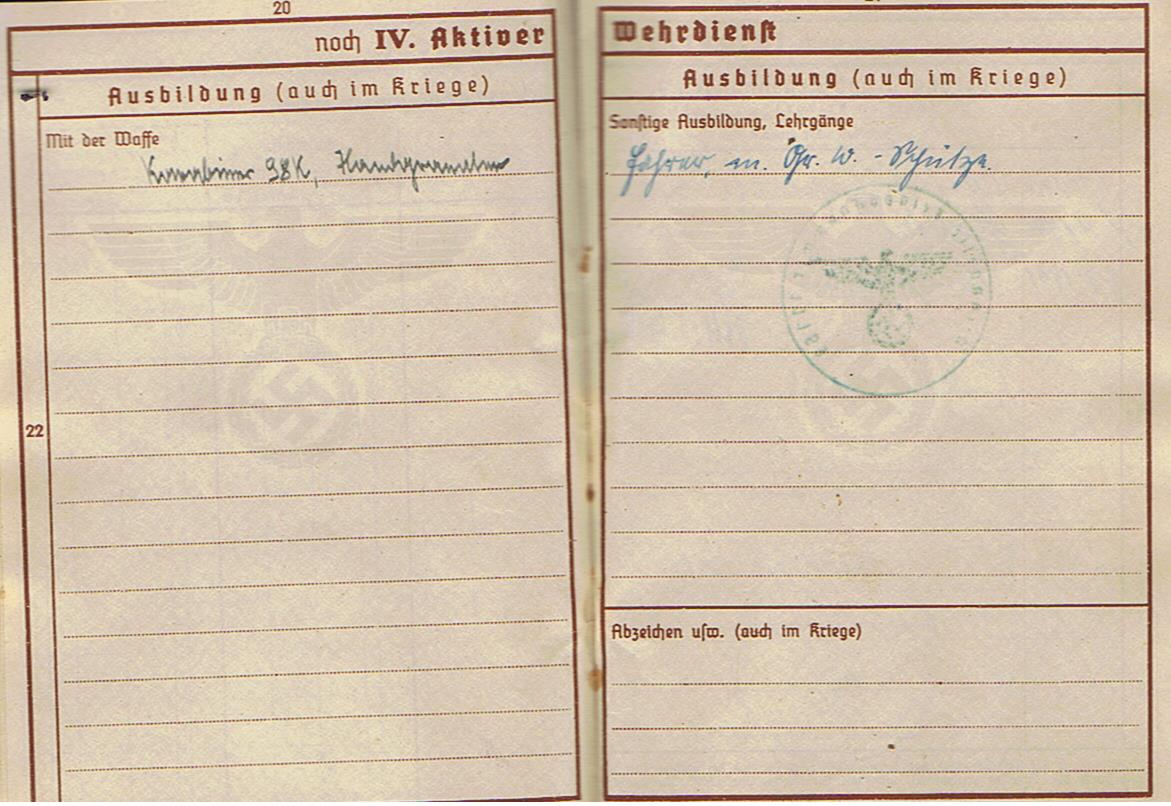 20
noch IV. Aktiver
Ausbildung (auch im Kriege)
Mit der Waffe
Karabiner 98K, Handgranaten
22
Wehrdienst
Ausbildung (auch im Kriege)
Sonstige Ausbildung, Lehrgänge
Fahrer, m. Gr. W. - Schütze.
Abzeichen usw. (auch im Kriege)